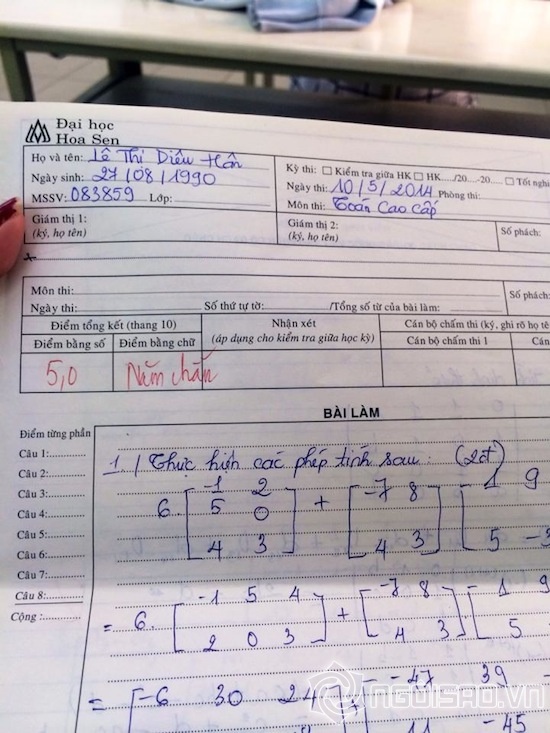 Đại học
Hoa Sen
Họ và tên: Lê Thị Diệu Hân
Ngày sinh: 27/08/1990
MSSV: 083859 Lớp:
Giám thị 1:
(ký, họ tên)
Kỳ thi: Kiểm tra giữa HK HK...../20....-20..... Tốt nghi
Ngày thi: 10/5/2014 Phòng thi:
Môn thi: Toán Cao Cấp
Giám thị 2:
(ký, họ tên)
Số phách:
Môn thi:
Ngày thi: Số thứ tự tờ: /Tổng số tờ của bài làm:
Số phách:
Điểm tổng kết (thang 10)
Điểm bằng số Điểm bằng chữ
Nhận xét
(áp dụng cho kiểm tra giữa học kỳ)
Cán bộ chấm thi (ký, ghi rõ họ tê
Cán bộ chấm thi 1 Cán
5,0 Năm chẵn
BÀI LÀM
Điểm từng phần
Câu 1:
Câu 2:
Câu 3:
Câu 4:
Câu 5:
Câu 6:
Câu 7:
Câu 8:
Cộng :
1./ Thực hiện các phép tính sau: (2đ)
6. [-1 2 + [-7 8 [-1 9
5 0
4 3] 4 3] 5 -3
= 6. [-1 5 4 + [-7 8 . [-1 9
2 0 3] 4 3] 5
= [-6 30 24 + [-47 39
11 -45
NGOISAO.VN